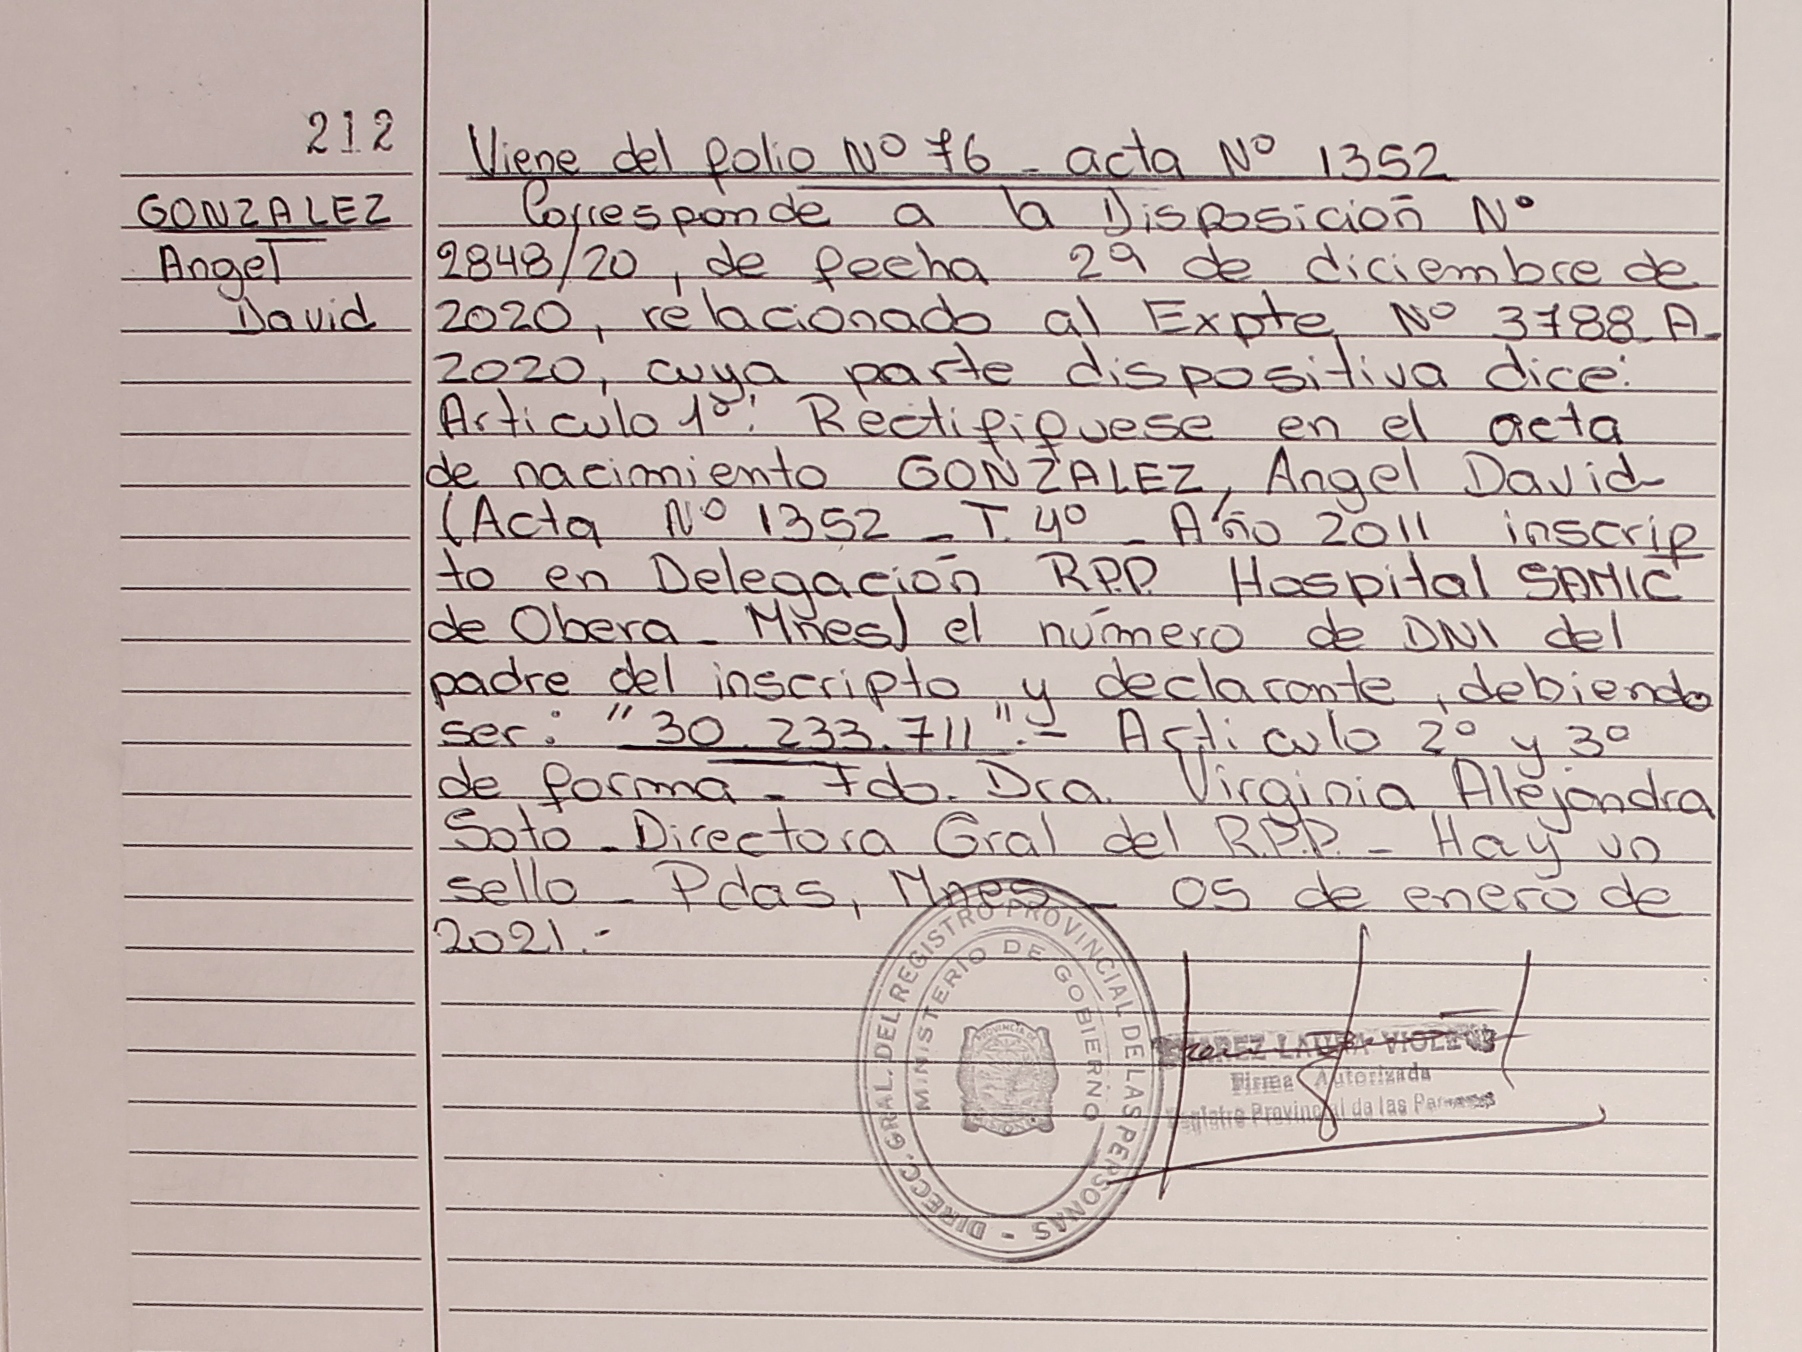 212
GONZALEZ
Angel
David
Viene del folio Nº 76 - acta Nº 1352
Corresponde a la Disposición Nº
2848/20, de fecha 29 de diciembre de
2020, relacionado al Expte Nº 3788 A-
2020, cuya parte dispositiva dice:
Articulo 1º: Rectififuese en el acta
de nacimiento GONZALEZ, Angel David
(Acta Nº 1352 - T. 4º - Año 2011 inscrip
to en Delegación R.P.P. Hospital SAMIC
de Obera - Mnes) el número de DNI del
padre del inscripto y declarante, debiendo
ser: "30.233.711".- Articulo 2º y 3º
de forma - Fdo. Dra. Virginia Alejandra
Soto - Directora Gral del R.P.P. - Hay un
sello - Pdas, Mnes - 05 de enero de
2021.-
DIRECC. GRAL. DEL REGISTRO PROVINCIAL DE LAS PERSONAS -
MINISTERIO DE GOBIERNO
PROVINCIA DE
MISIONES
LAURA
Firma Autorizada
Registro Provincial de las Personas